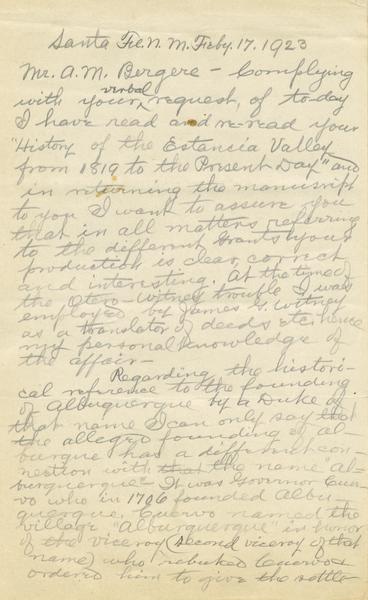 Santa Fe. N. M. Feby. 17. 1923
Mr. A. M. Bergere - Complying
with your verbal request, of to-day
I have read and re-read your
"History of the Estancia Valley
from 1819 to the Present Day" and
in returning the manuscript
to you I want to assure you
that in all matters referring
to the different Grants your
production is clear, correct
and interesting. At the time of
the Otero-Witney trouble I was
employed by James G. Witney
as a translator of deeds etc. hence
my personal knowledge of
the affair -
Regarding the histori-
cal reference to the founding
of Alburquerque by a Duke of
that name I can only say that
the alleged founding of Al-
burquerque has a different con-
nection with that the name "Al-
burquerque" It was Governor Cuer-
vo who in 1706 founded Albu-
querque. Cuervo named the
village "Alburquerque" in honor
of the viceroy (second viceroy of that
name) who rebuked Cuervo &
ordered him to give the settle